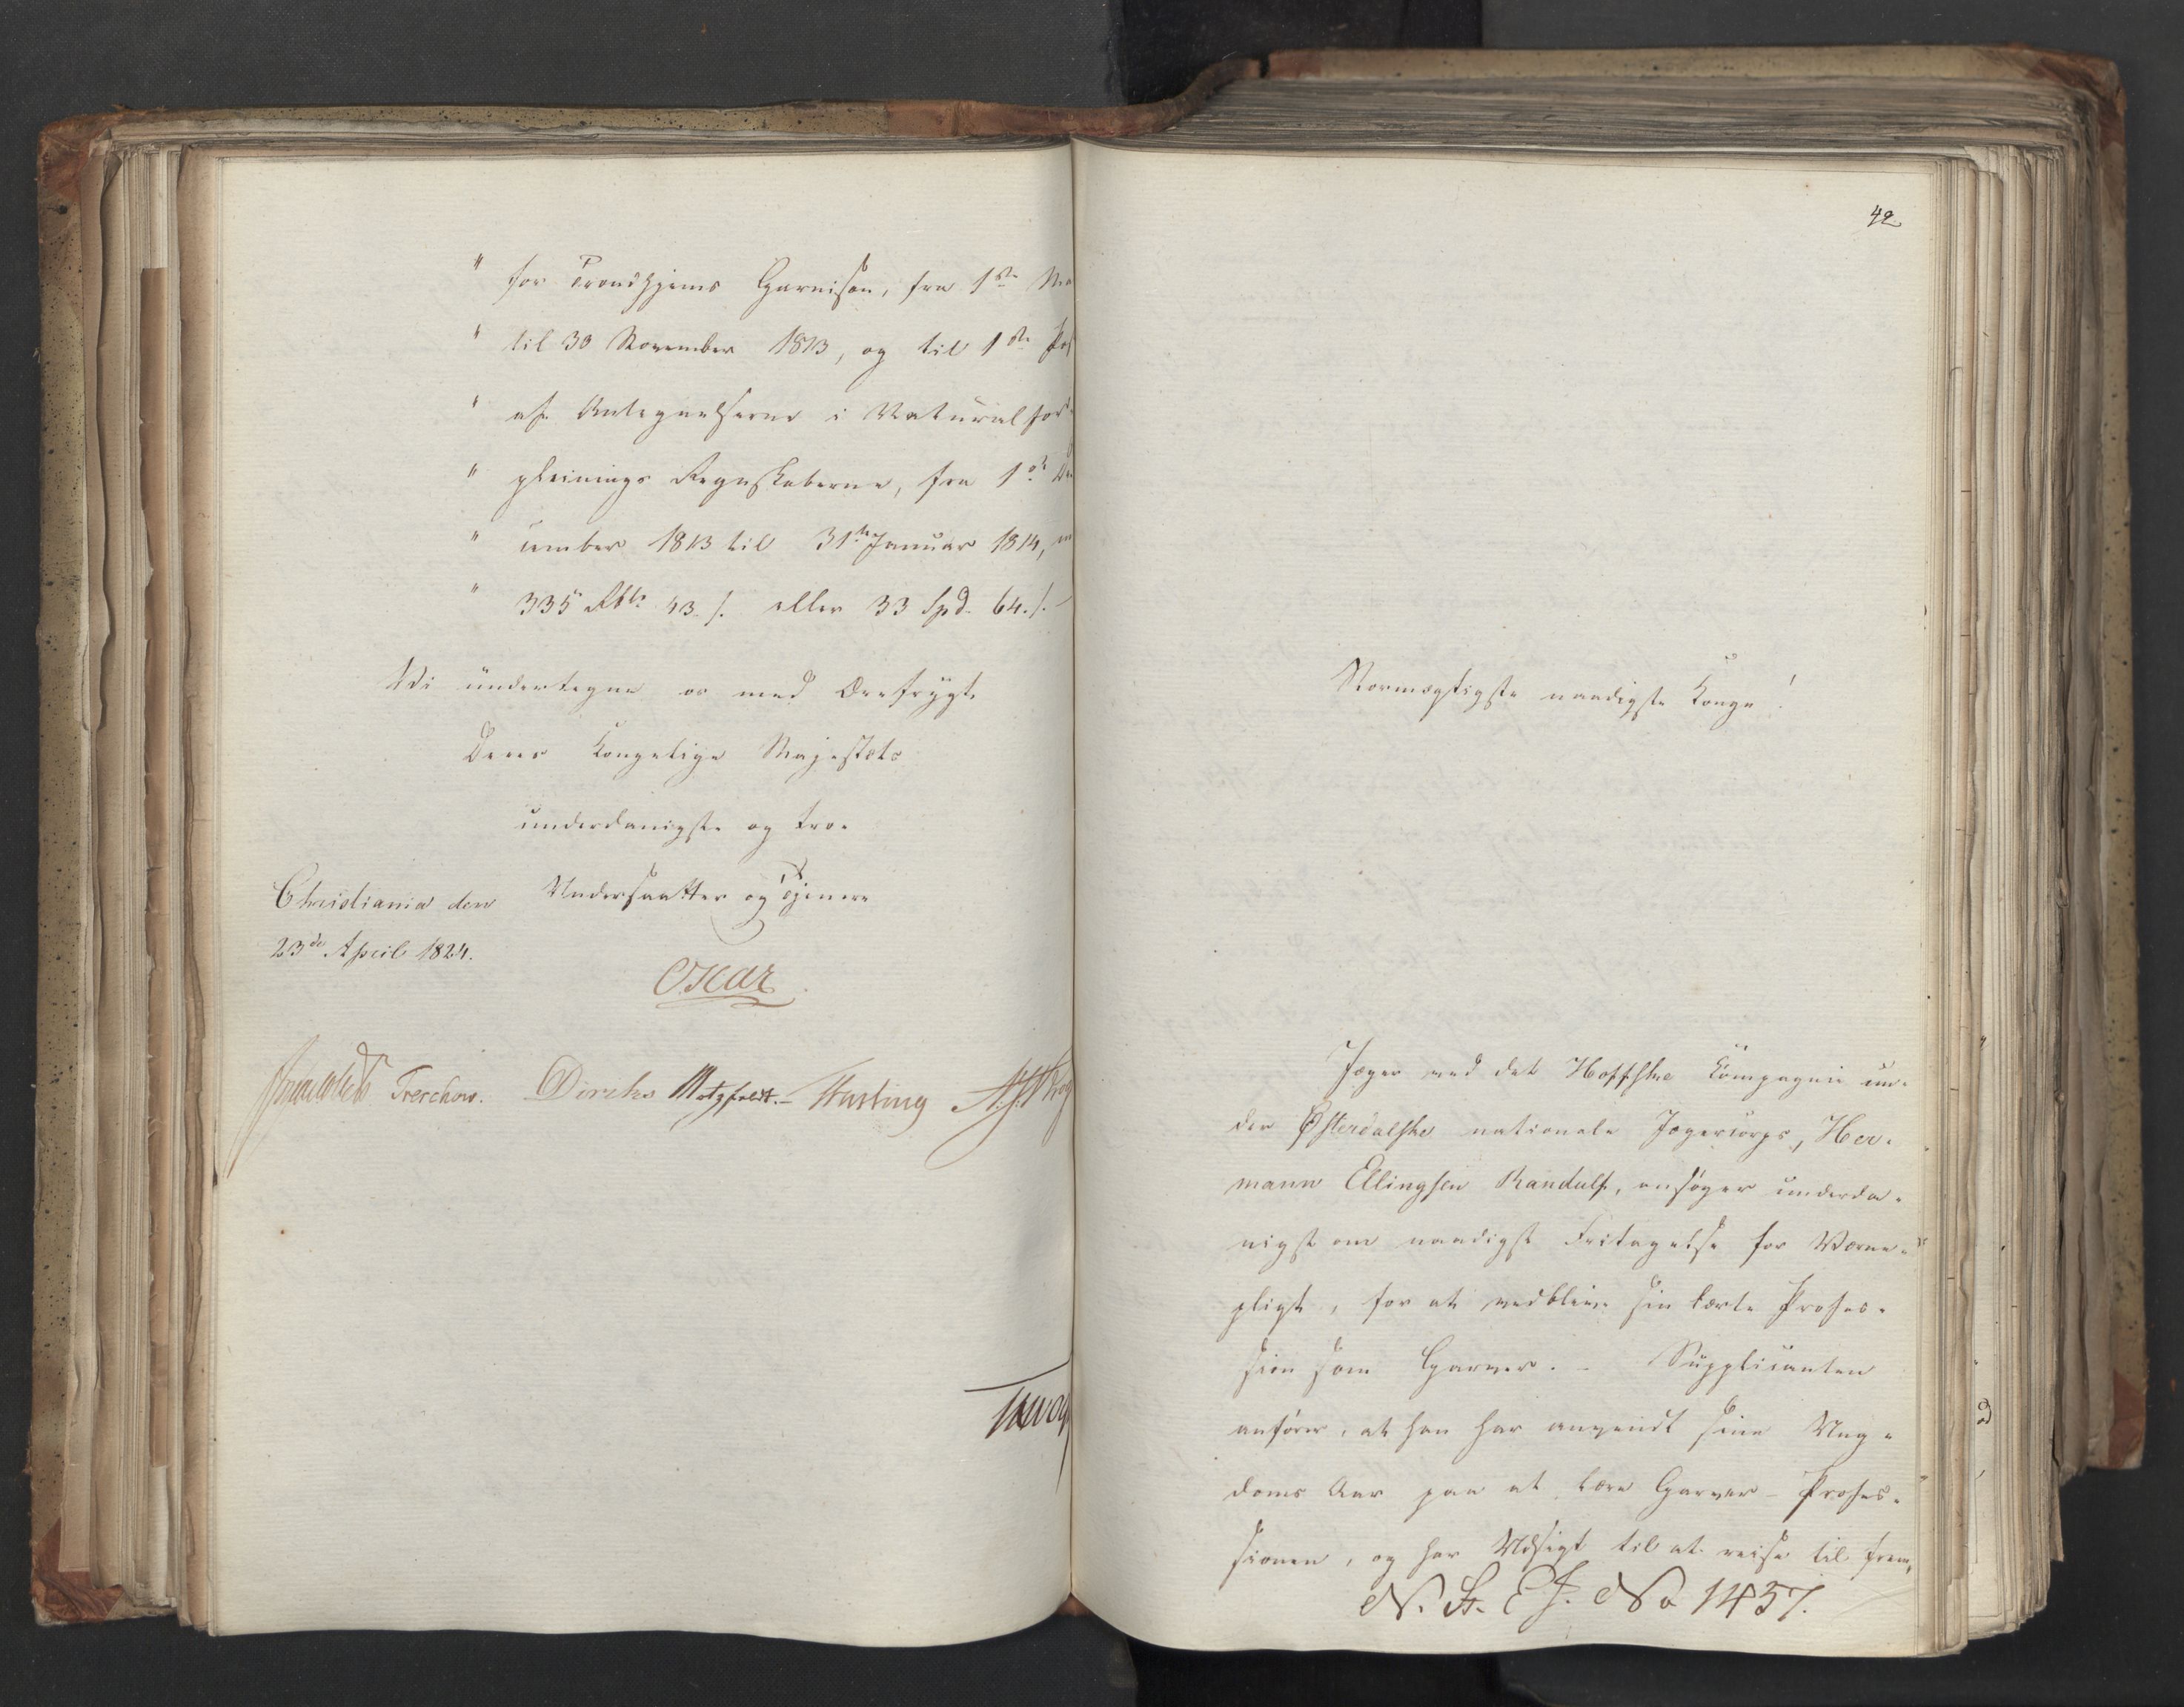 " for Trondhjems Garnison, fra 1ste Ma
" til 30 November 1813, og til 1ste Pos
" af Antegnelserne i Naturalfor-
" pleinings Regnskaberne, fra 1ste De
" cember 1813 til 31te Januar 1814,
" 335 Rbd. 43 s. eller 33 Spd. 64. s.
Vi undertegne os med Ærefrygt
Deres Kongelige Majestæts
underdanigste og tro-
Undersaatter og Tjenere
Christiania den
23de April 1824.
Oscar
Treschow. Diricks Motzfeldt. Fasting
42
Stormægtigste naadigste Konge!
Jæger ved det Hoffske Compagnie un-
der Østerdalske nationale Jægercorps, Her-
mann Ellingsen Randulf, ansøger underda-
nigst om naadigst Fritagelse for Værne-
pligt, for at vedblive sin lærte Profes-
sion som Garver. - Supplicanten
anfører, at han har anvendt sine Ung-
doms Aar paa at lære Garver-Profes-
sionen, og har Udsigt til at reise til frem-
N. St. E J. No 1457.